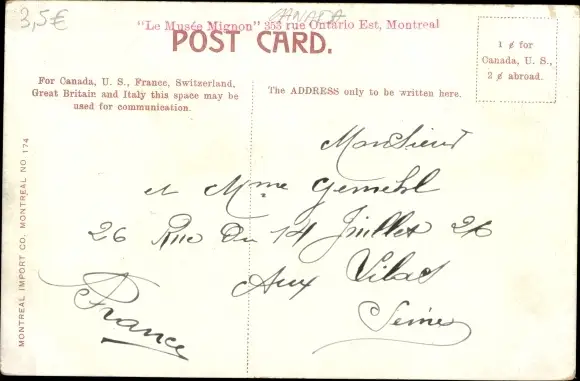 3,5€
CANADA
"Le Musée Mignon" 353 rue Ontario Est, Montreal
POST CARD.
1 ¢ for
Canada, U. S.,
2 ¢ abroad.
For Canada, U. S., France, Switzerland,
Great Britain and Italy this space may be
used for communication.
The ADDRESS only to be written here.
MONTREAL IMPORT CO. MONTREAL NO 174
Monsieur
et Mme Gemehl
26 Rue Du 14 Juillet 26
Aux Lilas
Seine
France